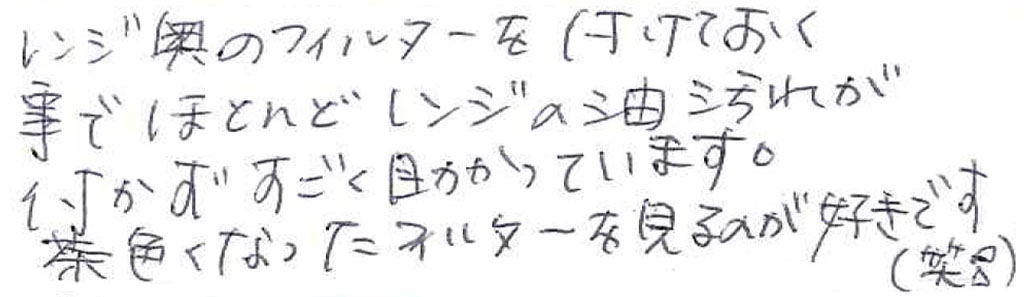 レンジ奥のフィルターを付けておく
事でほとんどレンジの油汚れが
付かずすごく助かっています。
茶色くなったフィルターを見るのが好きです
(笑)